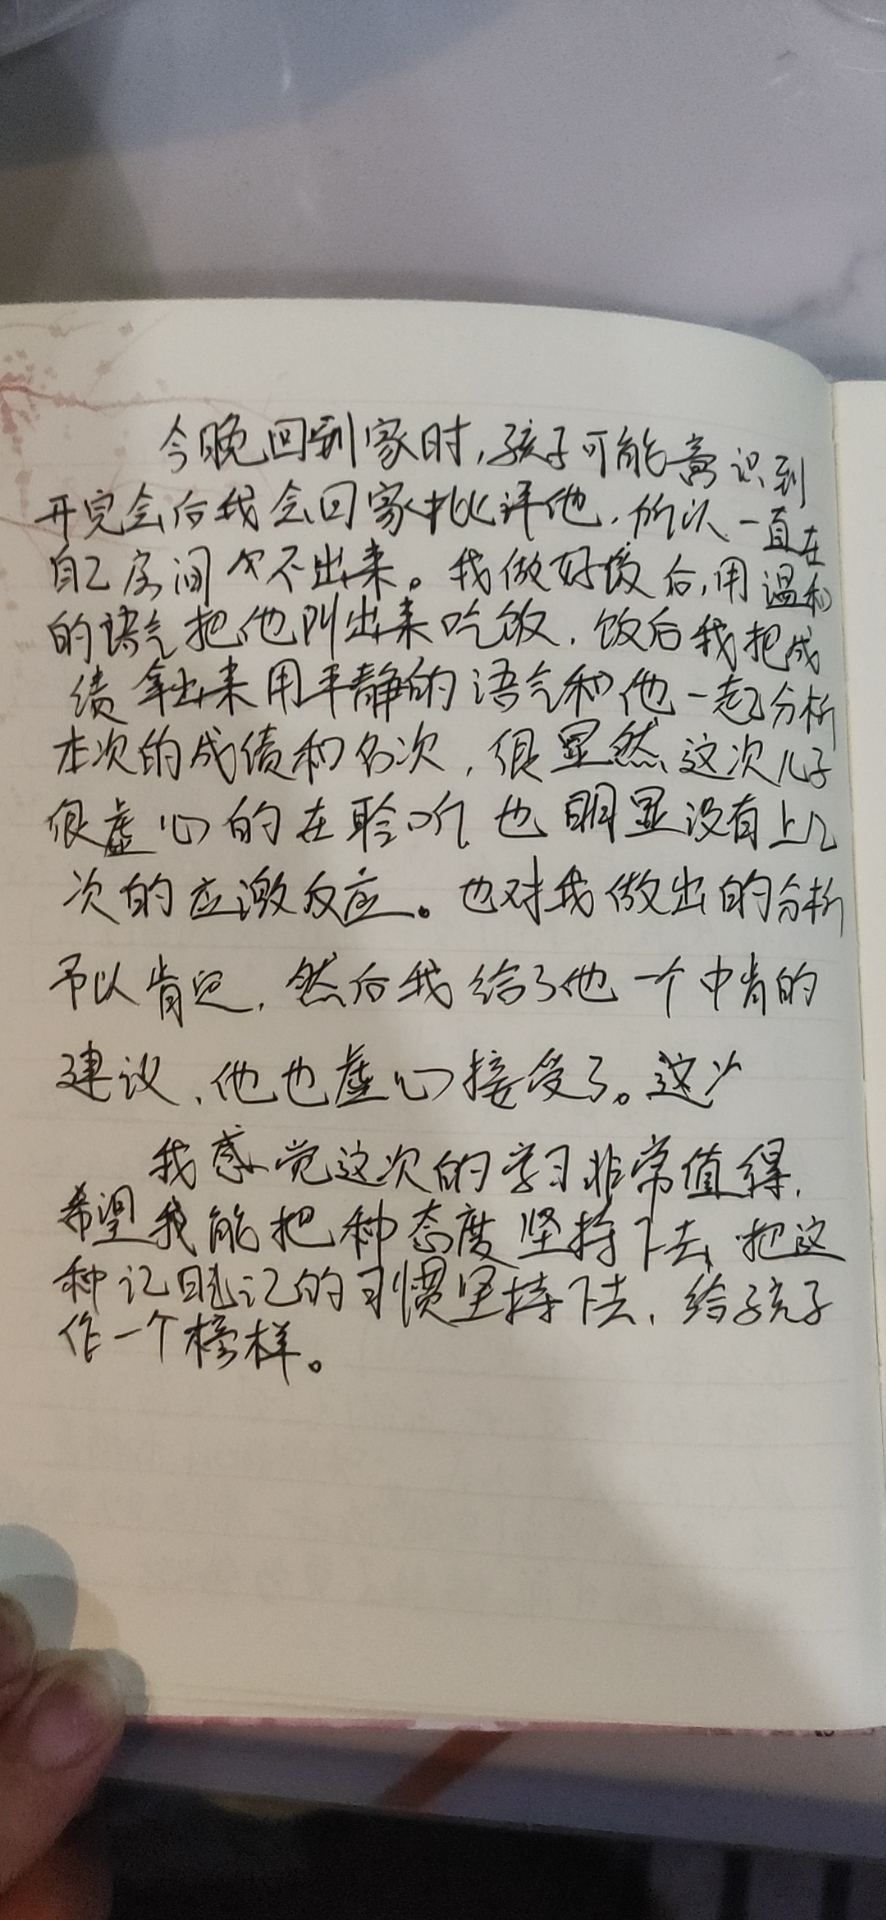 今晚回到家时,孩子可能意识到
开完会后我会回家批评他,所以一直在
自己房间不出来。我做好饭后,用温和
的语气把他叫出来吃饭,饭后我把成
绩拿出来用平静的语气和他一起分析
本次的成绩和名次,很显然这次儿子
很虚心的在聆听也明显没有上几
次的应激反应。也对我做出的分析
予以肯定,然后我给了他一个中肯的
建议,他也虚心接受了。这
我感觉这次的学习非常值得,
希望我能把种态度坚持下去,把这
种记日记的习惯坚持下去,给孩子
作一个榜样。